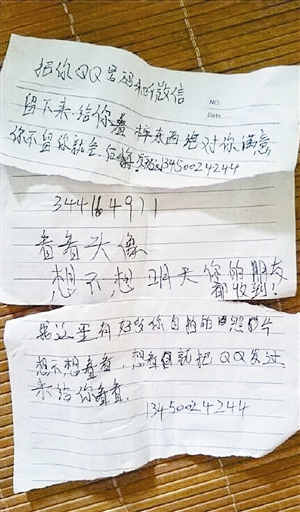 把你QQ号码和微信
NO:
Date:
留下来.给你看样东西绝对你满意
你不留你就会后悔 发13450024244
344164971
看看头像
想不想 明天你的朋友
都收到!
我这里有好多你自拍的照片
想不想看看,想看就把QQ发过
来给你看看.
13450024244